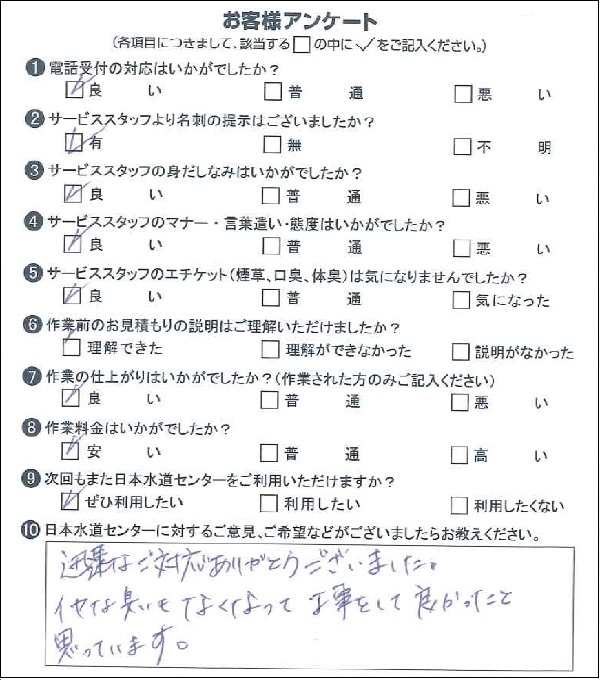 お客様アンケート
(各項目につきまして、該当する□の中に✓をご記入ください。)
❶電話受付の対応はいかがでしたか?
☑良い □普通 □悪い
❷サービススタッフより名刺の提示はございましたか?
☑有 □無 □不明
❸サービススタッフの身だしなみはいかがでしたか?
☑良い □普通 □悪い
❹サービススタッフのマナー・言葉遣い・態度はいかがでしたか?
☑良い □普通 □悪い
❺サービススタッフのエチケット(煙草、口臭、体臭)は気になりませんでしたか?
☑良い □普通 □気になった
❻作業前のお見積もりの説明はご理解いただけましたか?
☑理解できた □理解ができなかった □説明がなかった
❼作業の仕上がりはいかがでしたか?(作業された方のみご記入ください)
☑良い □普通 □悪い
❽作業料金はいかがでしたか?
☑安い □普通 □高い
❾次回もまた日本水道センターをご利用いただけますか?
☑ぜひ利用したい □利用したい □利用したくない
❿日本水道センターに対するご意見、ご希望などがございましたらお教えください。
迅速なご対応ありがとうございました。
イヤな臭いもなくなって工事をして良かったこと
思っています。